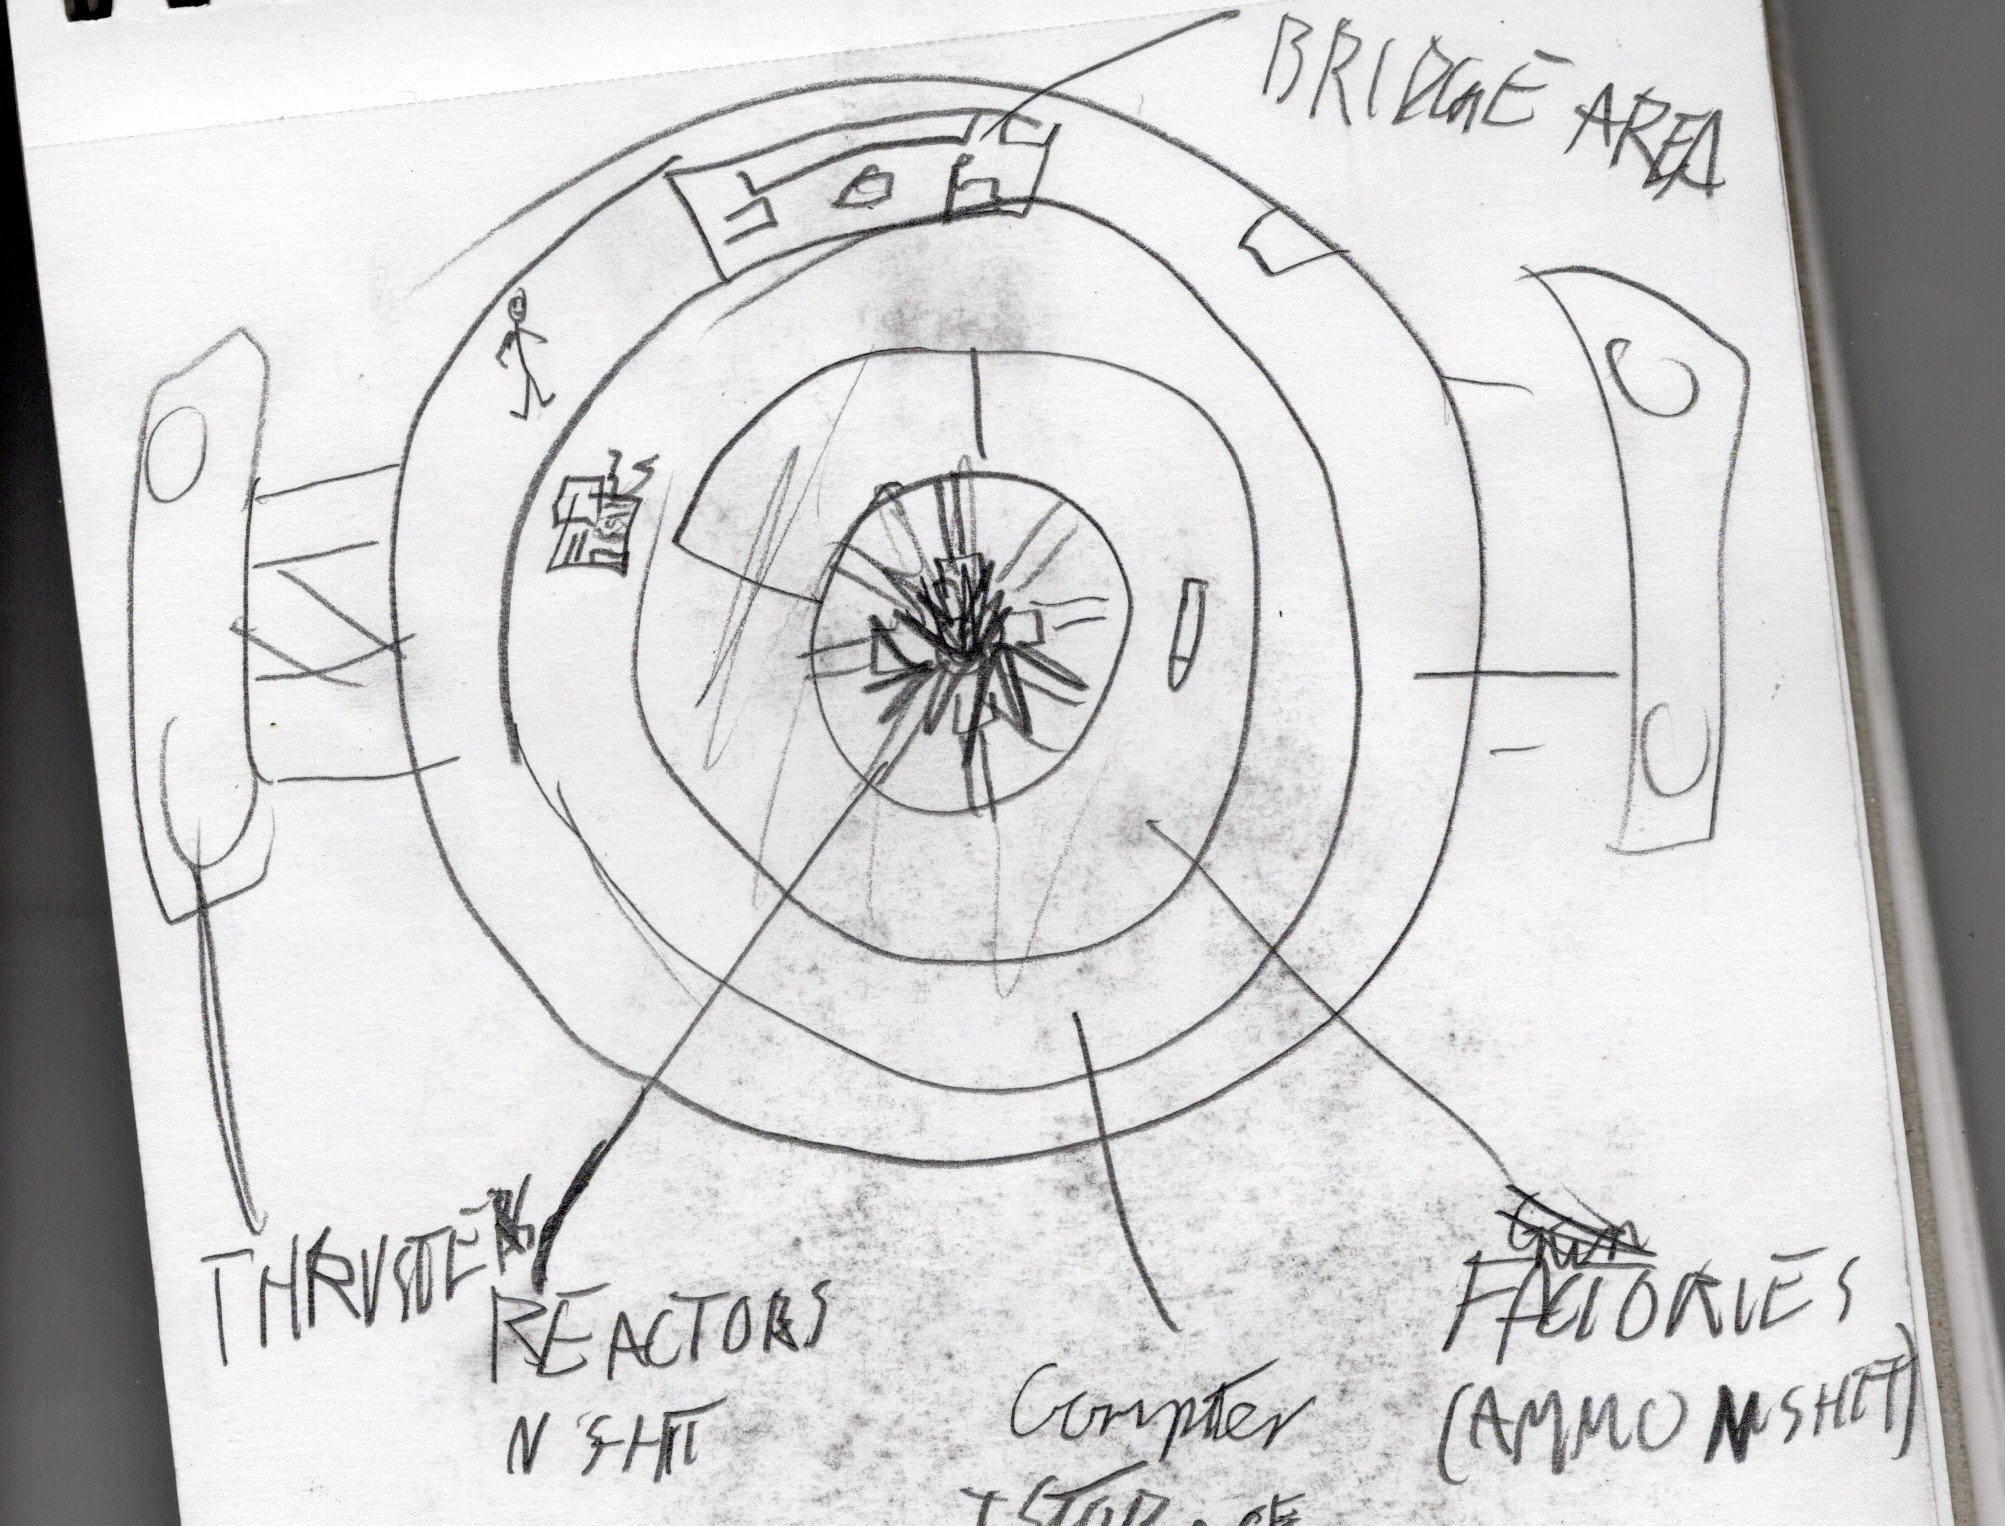 BRIDGE AREA
THRUSTERS
REACTORS
N SHIT
Gun
FACTORIES
(AMMO N SHIT)
Computer